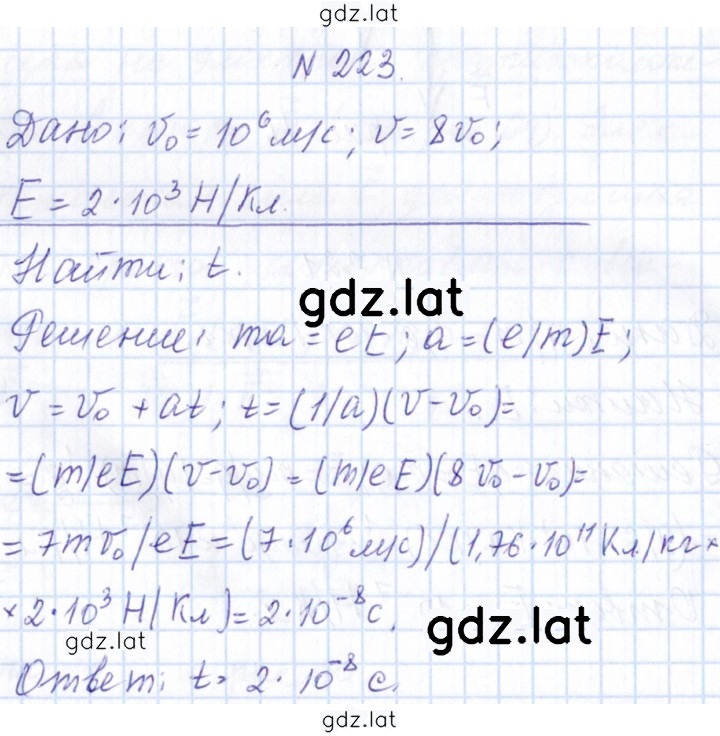 gdz.lat
N 223.
Дано: v₀ = 10⁶ м/с; v = 8v₀;
E = 2·10³ Н/Кл.
Найти: t.
gdz.lat
Решение: ma = eE; a = (e/m)E;
v = v₀ + at; t = (1/a)(v-v₀)=
= (m/eE)(v-v₀) = (m/eE)(8v₀-v₀)=
= 7mv₀/eE = (7·10⁶ м/с)/(1,76·10¹¹ Кл/кг ×
× 2·10³ Н/Кл) = 2·10⁻⁸ с.
gdz.lat
gdz.lat
Ответ: t = 2·10⁻⁸ с.
gdz.lat